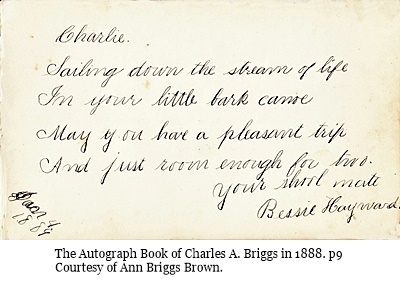 Charlie.
Sailing down the stream of life
In your little bark canoe
May you have a pleasant trip
And just room enough for two.
your shool mate
Bessie Hayward.
1889
The Autograph Book of Charles A. Briggs in 1888. p9
Courtesy of Ann Briggs Brown.